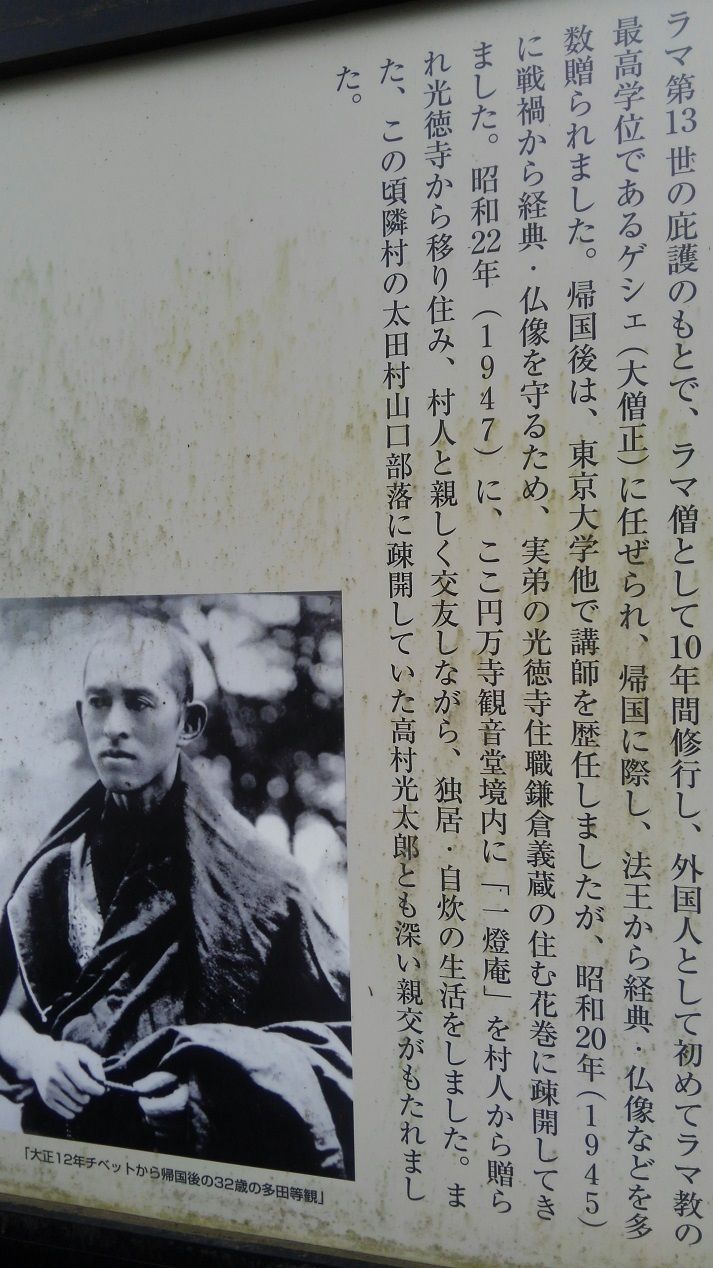 ラマ第13世の庇護のもとで、ラマ僧として10年間修行し、外国人として初めてラマ教の
最高学位であるゲシェ（大僧正）に任ぜられ、帰国に際し、法王から経典・仏像などを多
数贈られました。帰国後は、東京大学他で講師を歴任しましたが、昭和20年（1945）
に戦禍から経典・仏像を守るため、実弟の光徳寺住職鎌倉義蔵の住む花巻に疎開してき
ました。昭和22年（1947）に、ここ円万寺観音堂境内に「一燈庵」を村人から贈ら
れ光徳寺から移り住み、村人と親しく交友しながら、独居・自炊の生活をしました。ま
た、この頃隣村の太田村山口部落に疎開していた高村光太郎とも深い親交がもたれまし
た。
「大正12年チベットから帰国後の32歳の多田等観」